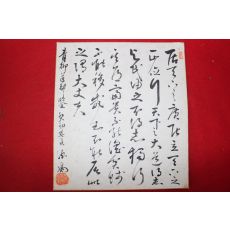 居天下之廣居立天下之
正位行天下之大道得志
與民由之不得志獨行
其道富貴不能淫貧賤
不能移威武不能屈此
之謂大丈夫
青柳